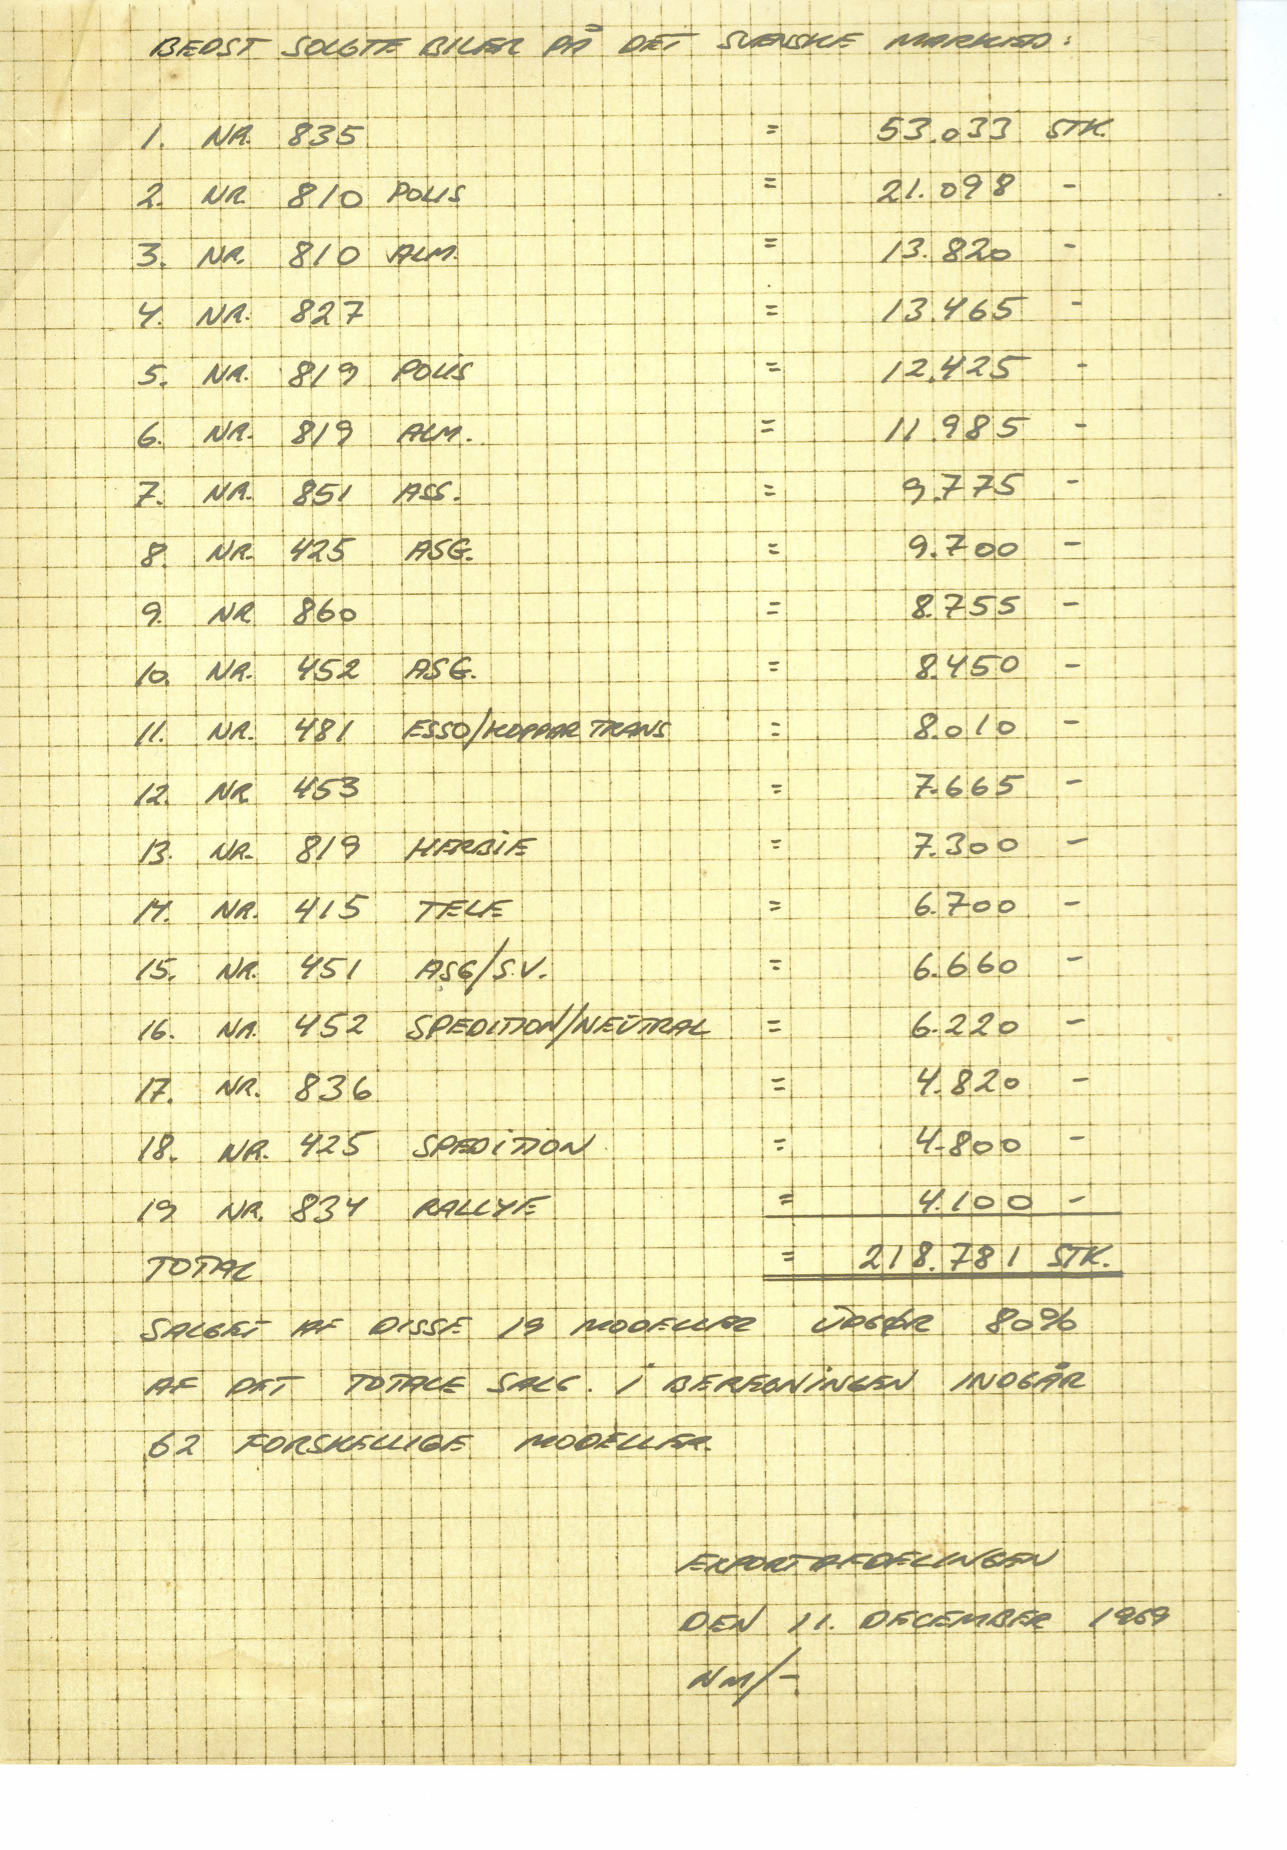 BEDST SOLGTE BILER PÅ DET SVENSKE MARKED:
1. NR. 835 = 53.033 STK.
2. NR. 810 POLIS = 21.098 -
3. NR. 810 ALM. = 13.820 -
4. NR. 827 = 13.465 -
5. NR. 819 POLIS = 12.425 -
6. NR. 819 ALM. = 11.985 -
7. NR. 851 ASS. = 9.775 -
8. NR. 425 ASG. = 9.700 -
9. NR 860 = 8.755 -
10. NR. 452 ASG. = 8.450 -
11. NR. 481 ESSO/KOPPARTRANS = 8.010 -
12. NR 453 = 7.665 -
13. NR. 819 HERBIE = 7.300 -
14. NR. 415 TELE = 6.700 -
15. NR. 451 ASG/S.V. = 6.660 -
16. NR. 452 SPEDITION/NEUTRAL = 6.220 -
17. NR. 836 = 4.820 -
18. NR. 425 SPEDITION = 4.800 -
19 NR. 834 RALLYE = 4.100 -
TOTAL = 218.781 STK.
SALGET AF DISSE 19 MODELLER UDGØR 80%
AF DET TOTALE SALG. I BEREGNINGEN INDGÅR
62 FORSKELLIGE MODELLER.
EXPORTAFDELINGEN
DEN 11. DECEMBER 1969
NM/-